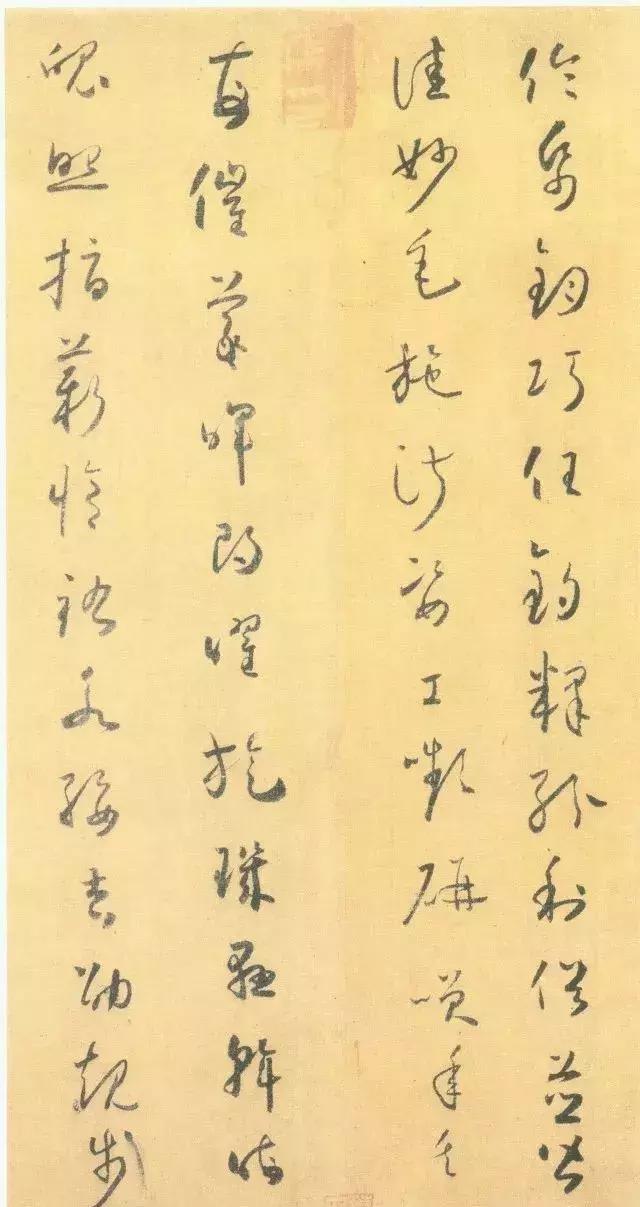 倫帋鈞巧任釣釋紛利俗並皆
佳妙毛施淑姿工嚬妍咲年矢
每催羲暉朗曜旋璣懸斡晦
魄照指薪脩祜永綏吉劭規步